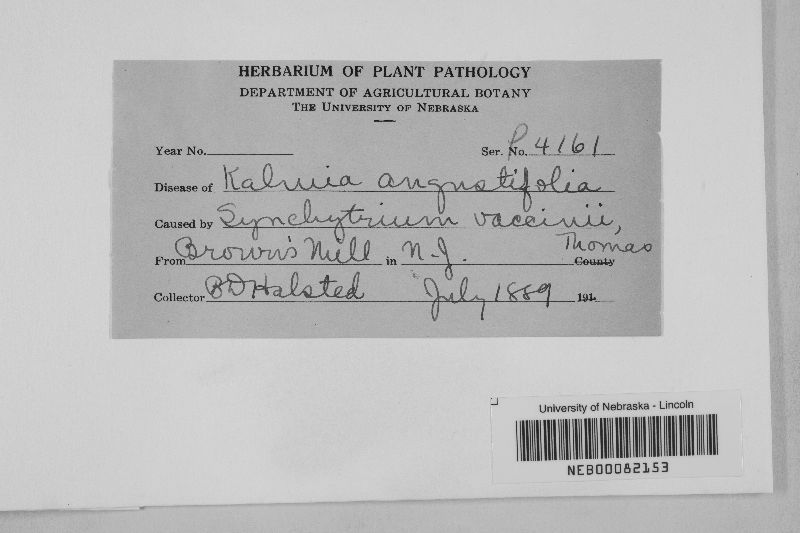 HERBARIUM OF PLANT PATHOLOGY
DEPARTMENT OF AGRICULTURAL BOTANY
THE UNIVERSITY OF NEBRASKA
Year No. Ser. No. P4161
Disease of Kalmia angustifolia
Caused by Synchytrium vaccinii, Thomas
From Brown's Mill in N.J. County
Collector BD Halsted July 1889 191
University of Nebraska - Lincoln
NEB00082153